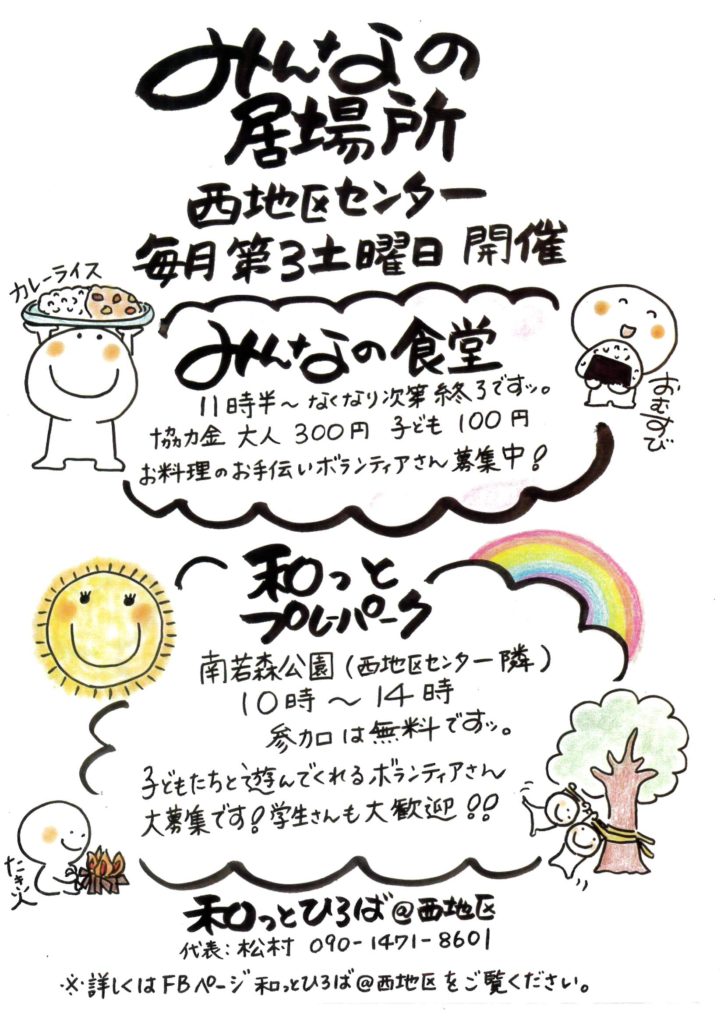 みんなの
居場所
西地区センター
毎月第3土曜日 開催
カレーライス
みんなの食堂
11時半～なくなり次第終了ですッ。
協力金 大人 300円 子ども 100円
お料理のお手伝いボランティアさん募集中!
おむすび
和っと
プレーパーク
南若森公園(西地区センター隣)
10時～14時
参加は無料ですッ。
子どもたちと遊んでくれるボランティアさん
大募集です!学生さんも大歓迎!!
たき火
和っとひろば@西地区
代表:松村 090-1471-8601
※詳しくはFBページ和っとひろば@西地区をご覧ください。